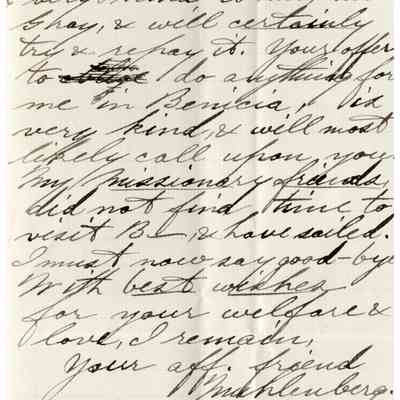 Gray, & will certainly
try & repay it. Your offer
to do anything for
me in Benicia, is
very kind, & will most
likely call upon you.
My missionary friends,
did not find time to
visit B—, & have sailed.
I must now say good-bye
With best wishes
for your welfare &
love, I remain,
Your aff. friend
Muhlenberg.